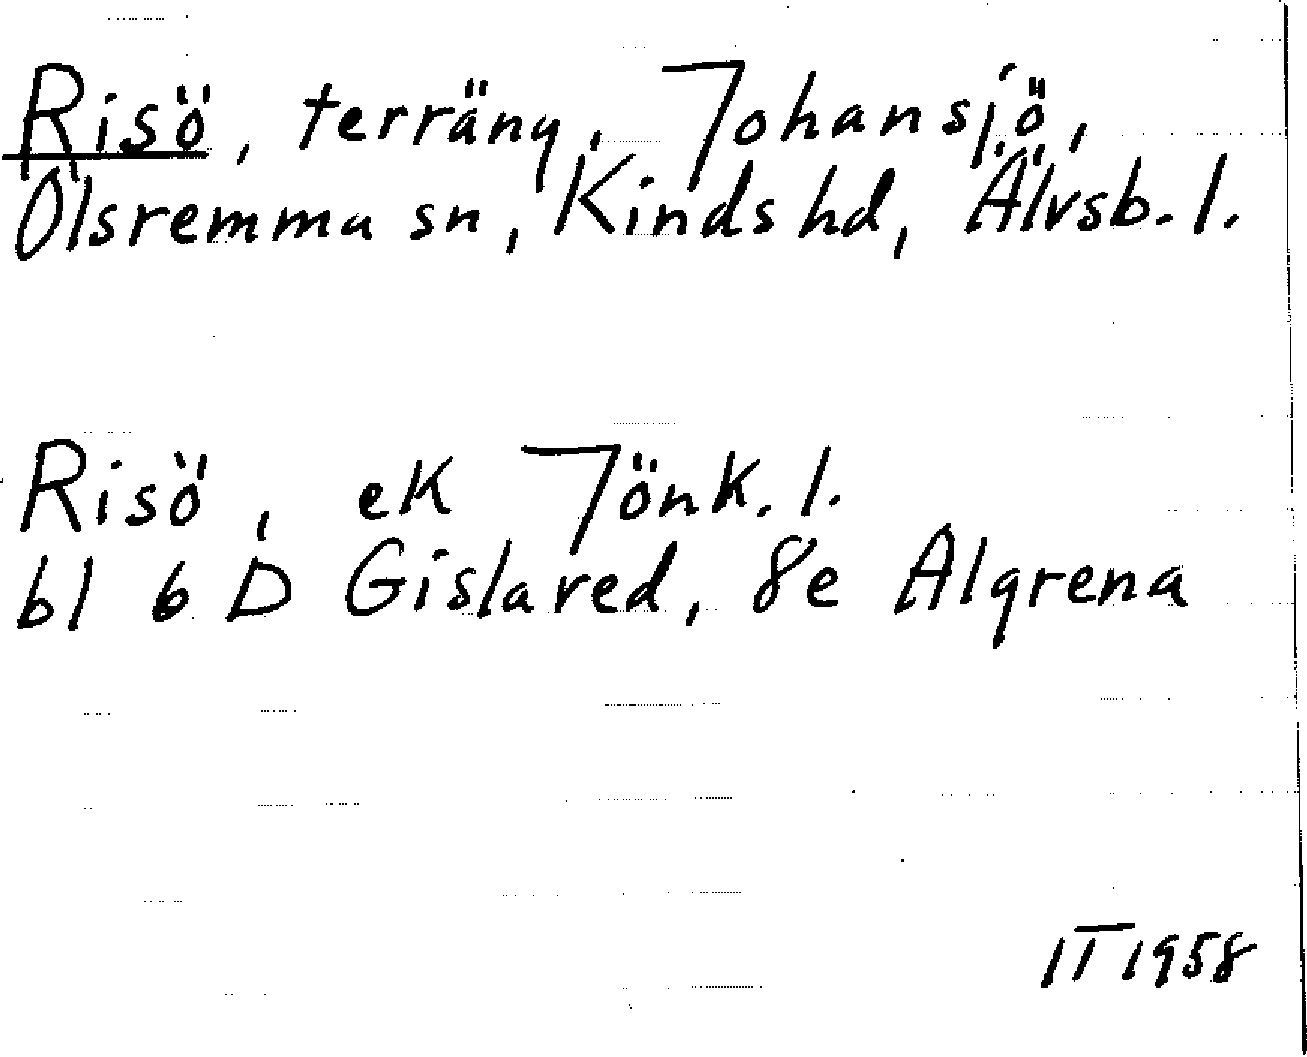 Risö, terräng, Johansjö,
Ölsremma sn, Kinds hd, Älvsb. l.
Risö, ek Jönk. l.
bl 6 D Gislaved, 8e Algrena
IT 1958